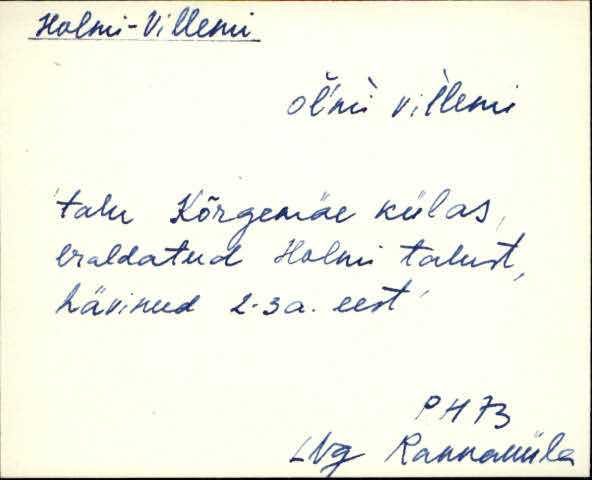 Holmi-Villemi
òl'mì vìl̀lemi
talu Kõrgemäe külas,
eraldatud Holmi talust,
hävinud 2-3 a. eest
PH 73
LNg Rannaküla